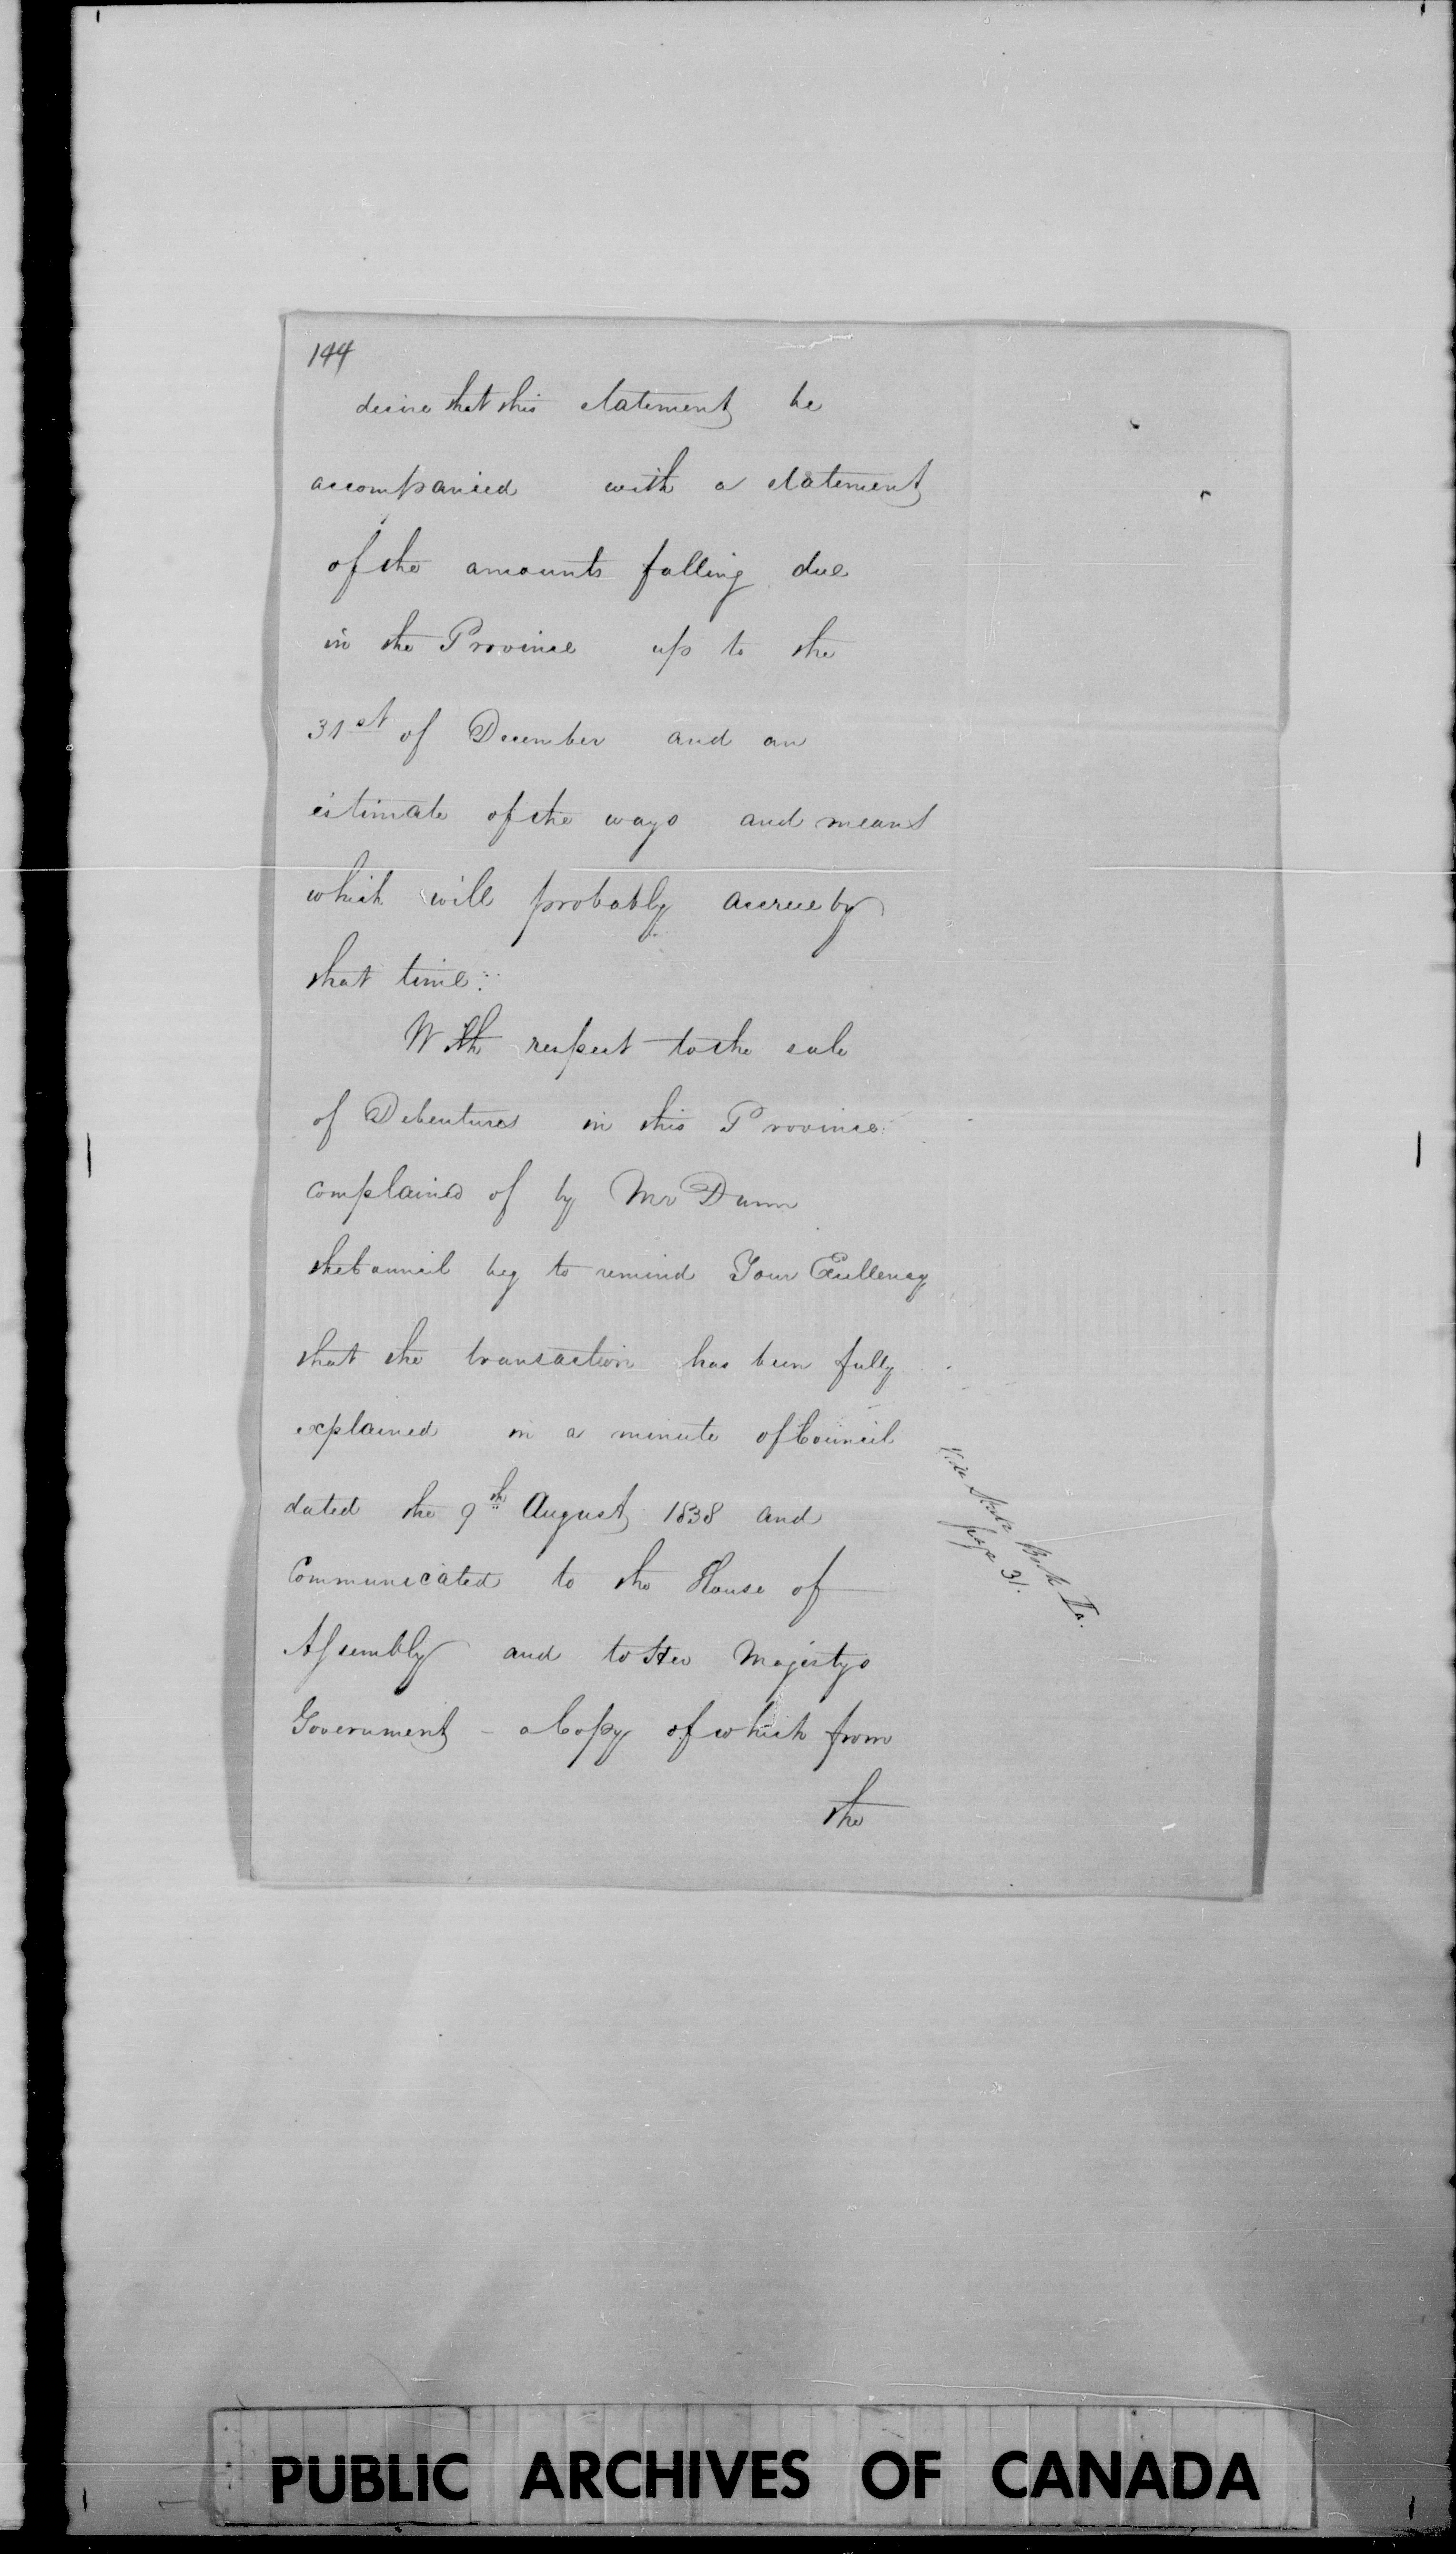 144
desire that this statement be
accompanied with a statement
of the amounts falling due
in the Province up to the
31st of December and an
estimate of the ways and means
which will probably accrue by
that time.
With respect to the sale
of Debentures in this Province
complained of by Mr Dunn
the Council beg to remind Your Excellency
that the transaction has been fully
explained in a minute of Council
dated the 9th August 1838 and
Communicated to the House of
Assembly and to Her Majestys
Government - a Copy of which from
the
Vide State Book
page 31.
PUBLIC ARCHIVES OF CANADA